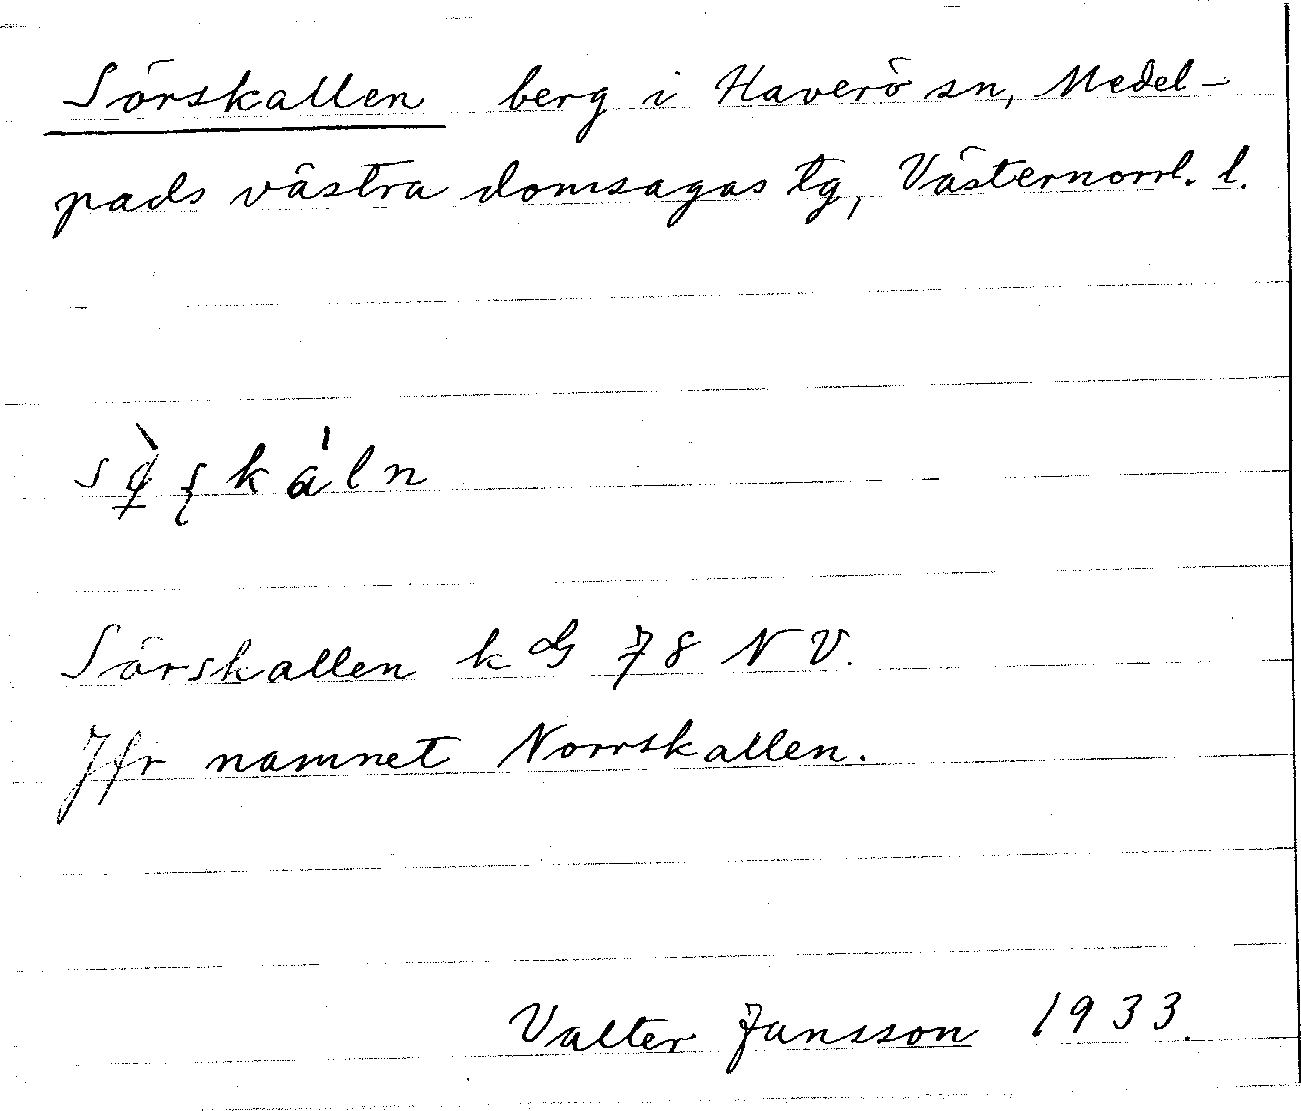 Sörskallen berg i Haverö sn, Medel-
pads västra domsagas tg, Västernorrl. l.
Sörskallen k G 78 NV.
Jfr namnet Norrskallen.
Valter Jansson 1933.